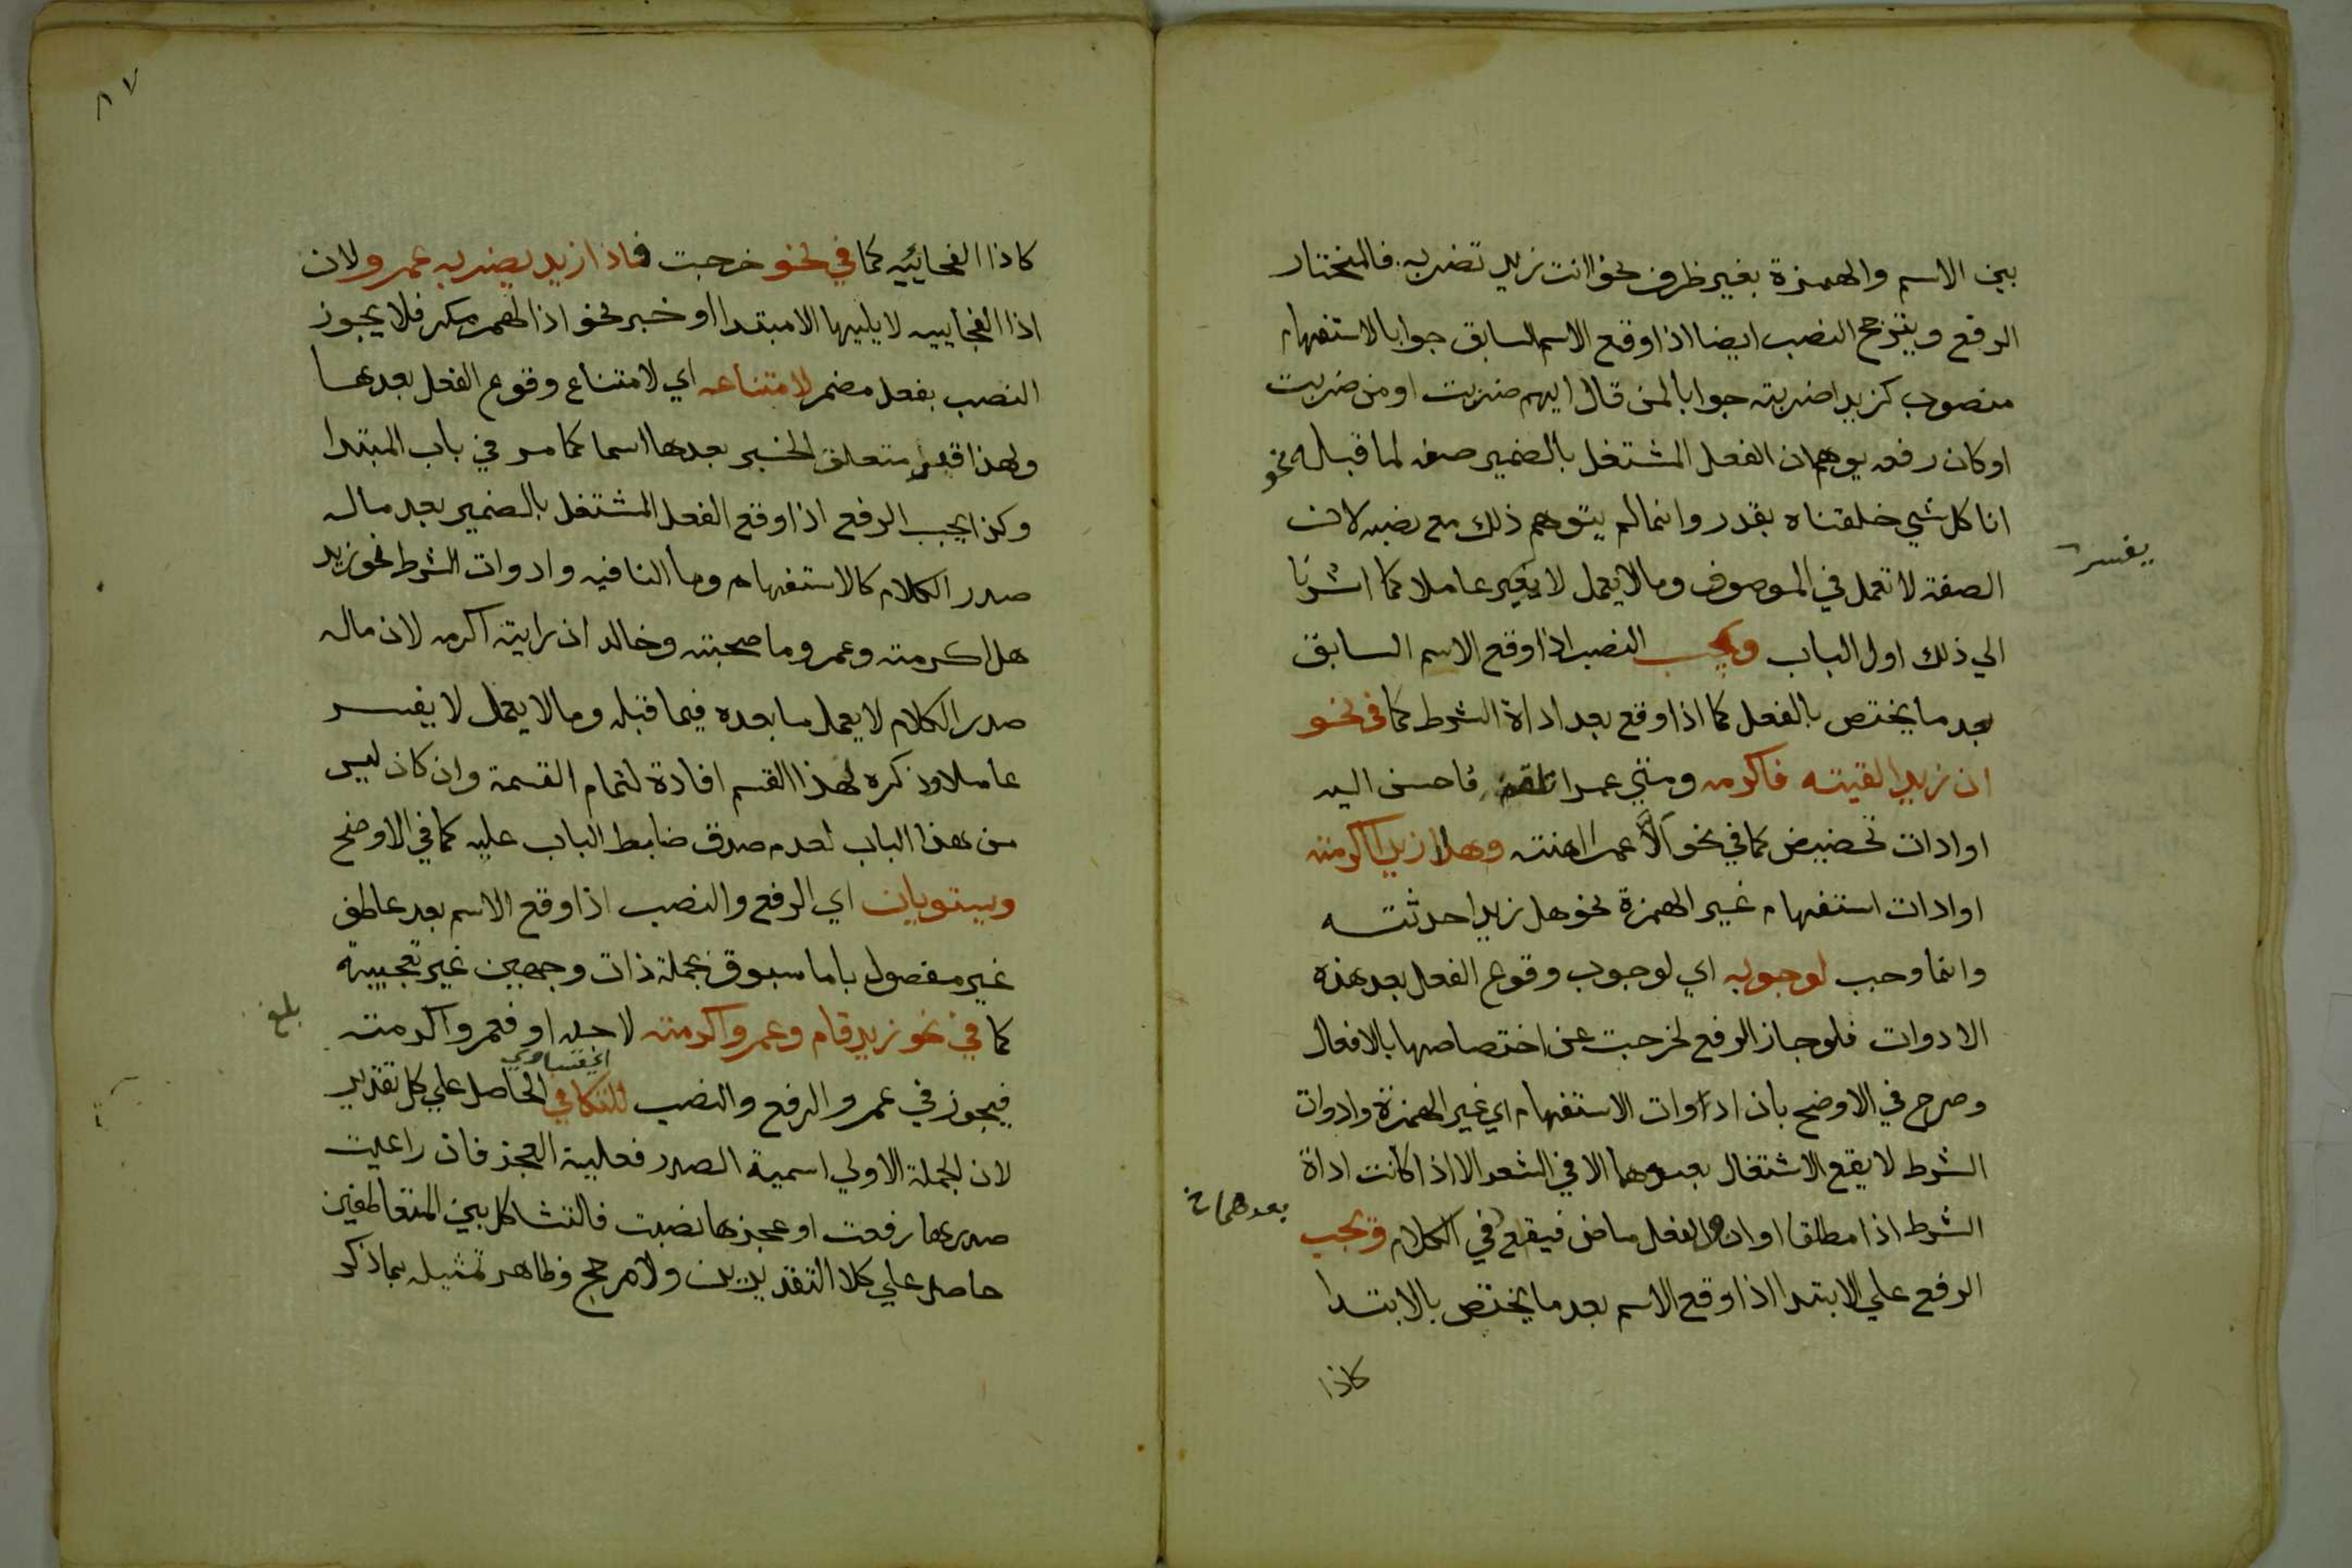 بين الاسم والهمزة بغير ظرف نحو اانت زيد تضربه فالمختار
الرفع ويترجح النصب ايضا اذا وقع الاسم السابق جوابا لاستفهام
منصوب كزيدا ضربته جوابا لمن قال ايهم ضربت او من ضربت
او كان رفعه يوهم ان الفعل المشتغل بالضمير صفه لما قبله نحو
انا كل شي خلقناه بقدر وانما لم يتوهم ذلك مع نصبه لان
الصفة لا تعمل في الموصوف وما لا يعمل لا يفسر عاملا كما اشرنا
يفسر
الي ذلك اول الباب ويجب النصب اذا وقع الاسم السابق
بعد ما يختص بالفعل كما اذا وقع بعد اداة الشرط كما في نحو
ان زيدا لقيته فاكرمه ومتي عمرا تلقه فاحسن اليه
او ادات تحضيض كما في نحو الا عمرا اهنته وهلا زيدا اكرمته
او ادات استفهام غير الهمزة نحو هل زيدا حدثته
وانما وجب لوجوبه اي لوجوب وقوع الفعل بعد هذه
الادوات فلو جاز الرفع لخرجت عن اختصاصها بالافعال
وصرح في الاوضح بان ادوات الاستفهام اي غير الهمزة وادوات
الشرط لا يقع الاشتغال بعدهما الا في الشعر الا اذا كانت اداة
بعدهما ن
الشرط اذا مطلقا او ان والفعل ماض فيقع في الكلام ويجب
الرفع علي الابتدا اذا وقع الاسم بعد ما يختص بالابتدا
كاذا
٨٧
كاذا الفجائيه كما في نحو خرجت فاذا زيد يضربه عمرو لان
اذا الفجاييه لا يليها الا مبتدا او خبر نحو اذا لهم مكر فلا يجوز
النصب بفعل مضمر لامتناعه اي لامتناع وقوع الفعل بعدها
ولهذا قدر متعلق الخبر بعدها اسما كما مر في باب المبتدا
وكذا يجب الرفع اذا وقع الفعل المشتغل بالضمير بعد ماله
صدر الكلام كالاستفهام وما النافيه وادوات الشرط نحو زيد
هل اكرمته وعمرو ما صحبته وخالد ان رايته اكرمه لان ماله
صدر الكلام لا يعمل ما بعده فيما قبله وما لا يعمل لا يفسر
عاملا وذكره لهذا القسم افادة لتمام القسمة وان كان ليس
من هذا الباب لعدم صدق ضابط الباب عليه كما في الاوضح
ويستويان اي الرفع والنصب اذا وقع الاسم بعد عاطف
غير مفصول باما مسبوق بجملة ذات وجهين غير تعجبية
كما في نحو زيد قام وعمرو اكرمته لاجله او فعمرو اكرمته
بلغ
فيجوز في عمرو الرفع والنصب للتكافي الحاصل علي كل تقدير
اي التساوي
لان الجملة الاولي اسمية الصدر فعلية العجز فان راعيت
صدرها رفعت او عجزها نصبت فالتشاكل بين المتعاطفين
حاصل علي كلا التقديرين ولا مرجح وظاهر تمثيله بما ذكر